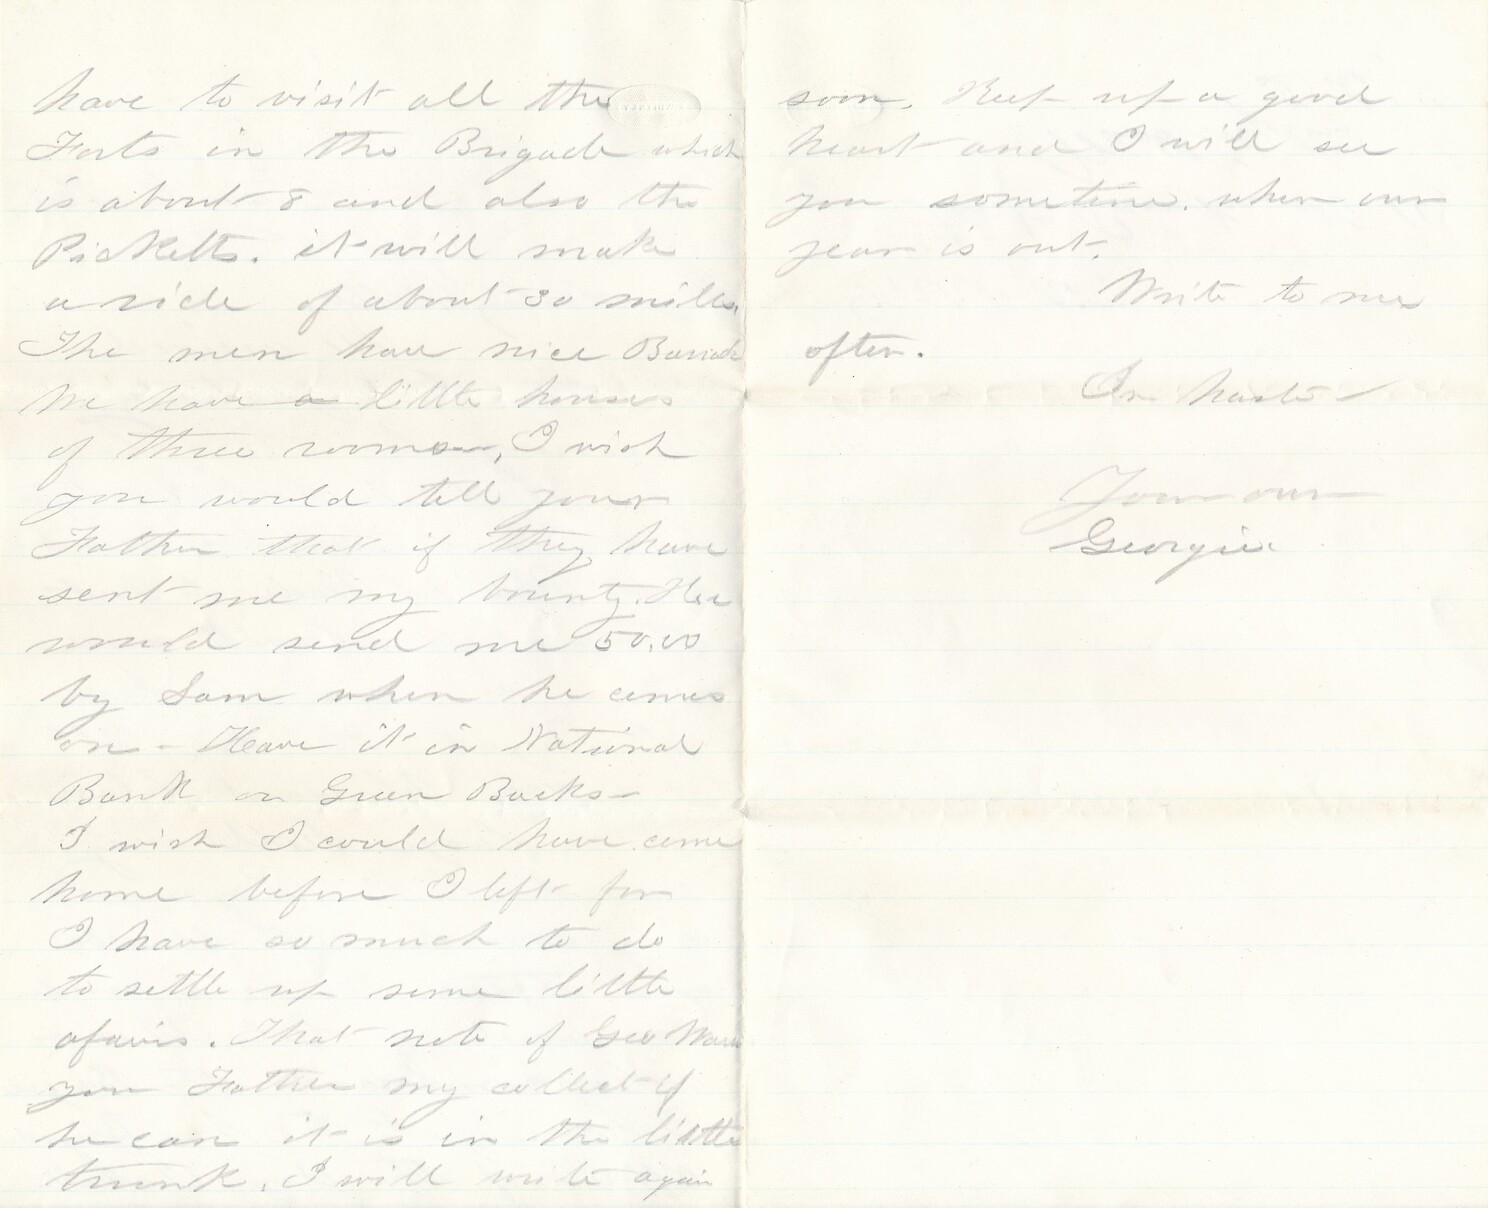 have to visit all the
Forts in the Brigade which
is about 8 and also the
Picketts. it will make
a ride of about 30 miles.
The men have nice
We have a little houses
of three rooms, I wish
you would tell your
Father that if they have
sent me my bounty. He
would send me 50.00
by Sam when he comes
on - Have it in National
Bank or Green Backs -
I wish I could have come
home before I left for
I have so much to do
to settle up some little
afairs. That note of Geo
you Father my collect if
he can it is in the little
trunk. I will write again
soon. Keep up a good
heart and I will see
you sometime. when our
year is out.
Write to me
often.
In haste -
Your own
Georgie.